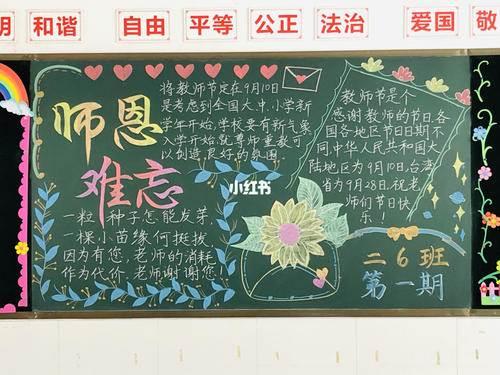 明 和谐 自由 平等 公正 法治 爱国 敬
师恩
难忘
将教师节定在9月10日
是考虑到全国大中小学新
学年开始,学校要有新气象
入学开始就尊师重教可
以创造良好的氛围
一粒种子怎能发芽,
一棵小苗缘何挺拔,
因为有您,老师的消耗
作为代价,老师谢谢您!
小红书
教师节是个
感谢教师的节日,各
国各地区节日日期不
同中华人民共和国大
陆地区为9月10日,台湾
省为9月28日.祝老
师们节日快
乐!
二6班
第一期